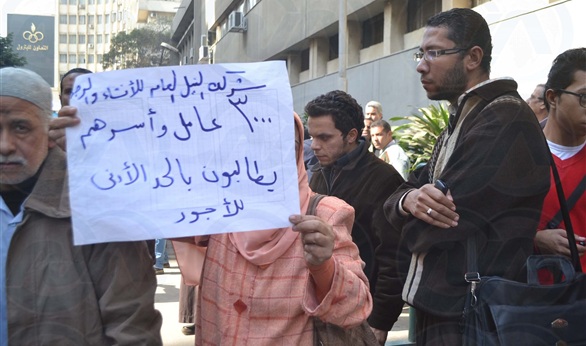 التعاون للبترول
شركة النيل العامه للأنشاء والرصف
٣٠٠٠ عامل وأسرهم
يطالبون بالحد الأدنى
للأجور